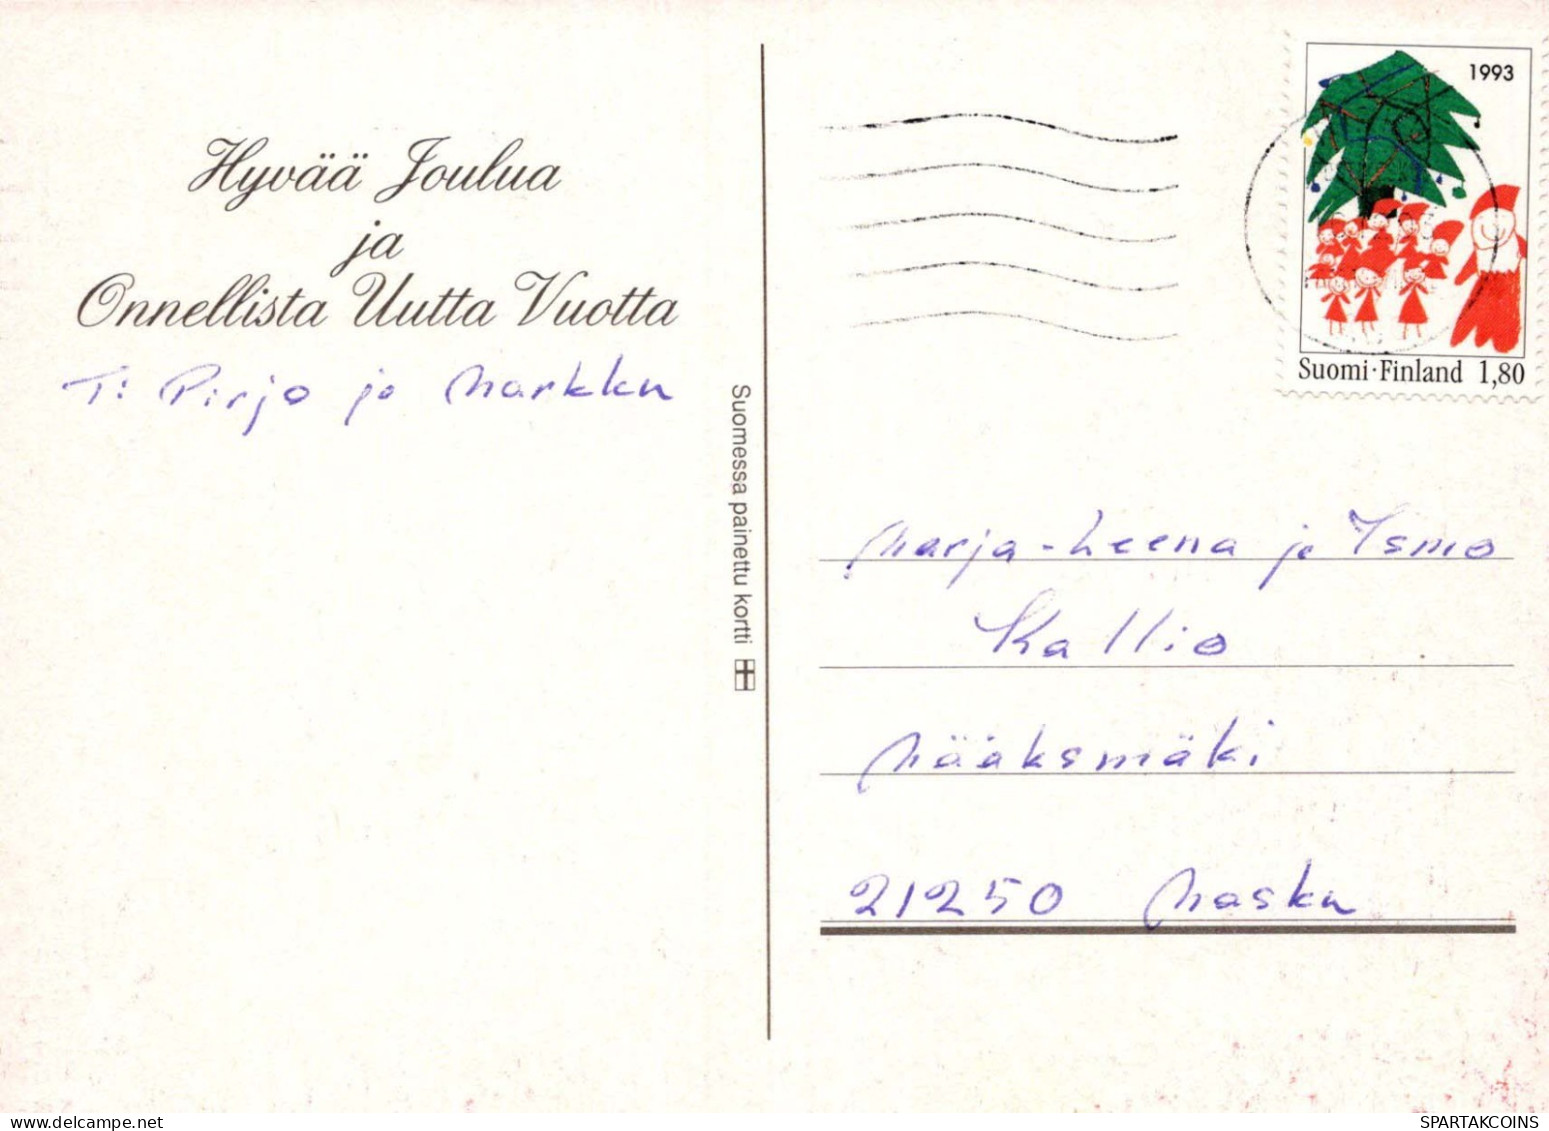 Hyvää Joulua
ja
Onnellista Uutta Vuotta
T: Pirjo ja Markku
Suomessa painettu kortti
1993
Suomi · Finland 1,80
Marja-Leena ja Ismo
Kallio
Määksmäki
21250 Masku
SPARTAKCOINS